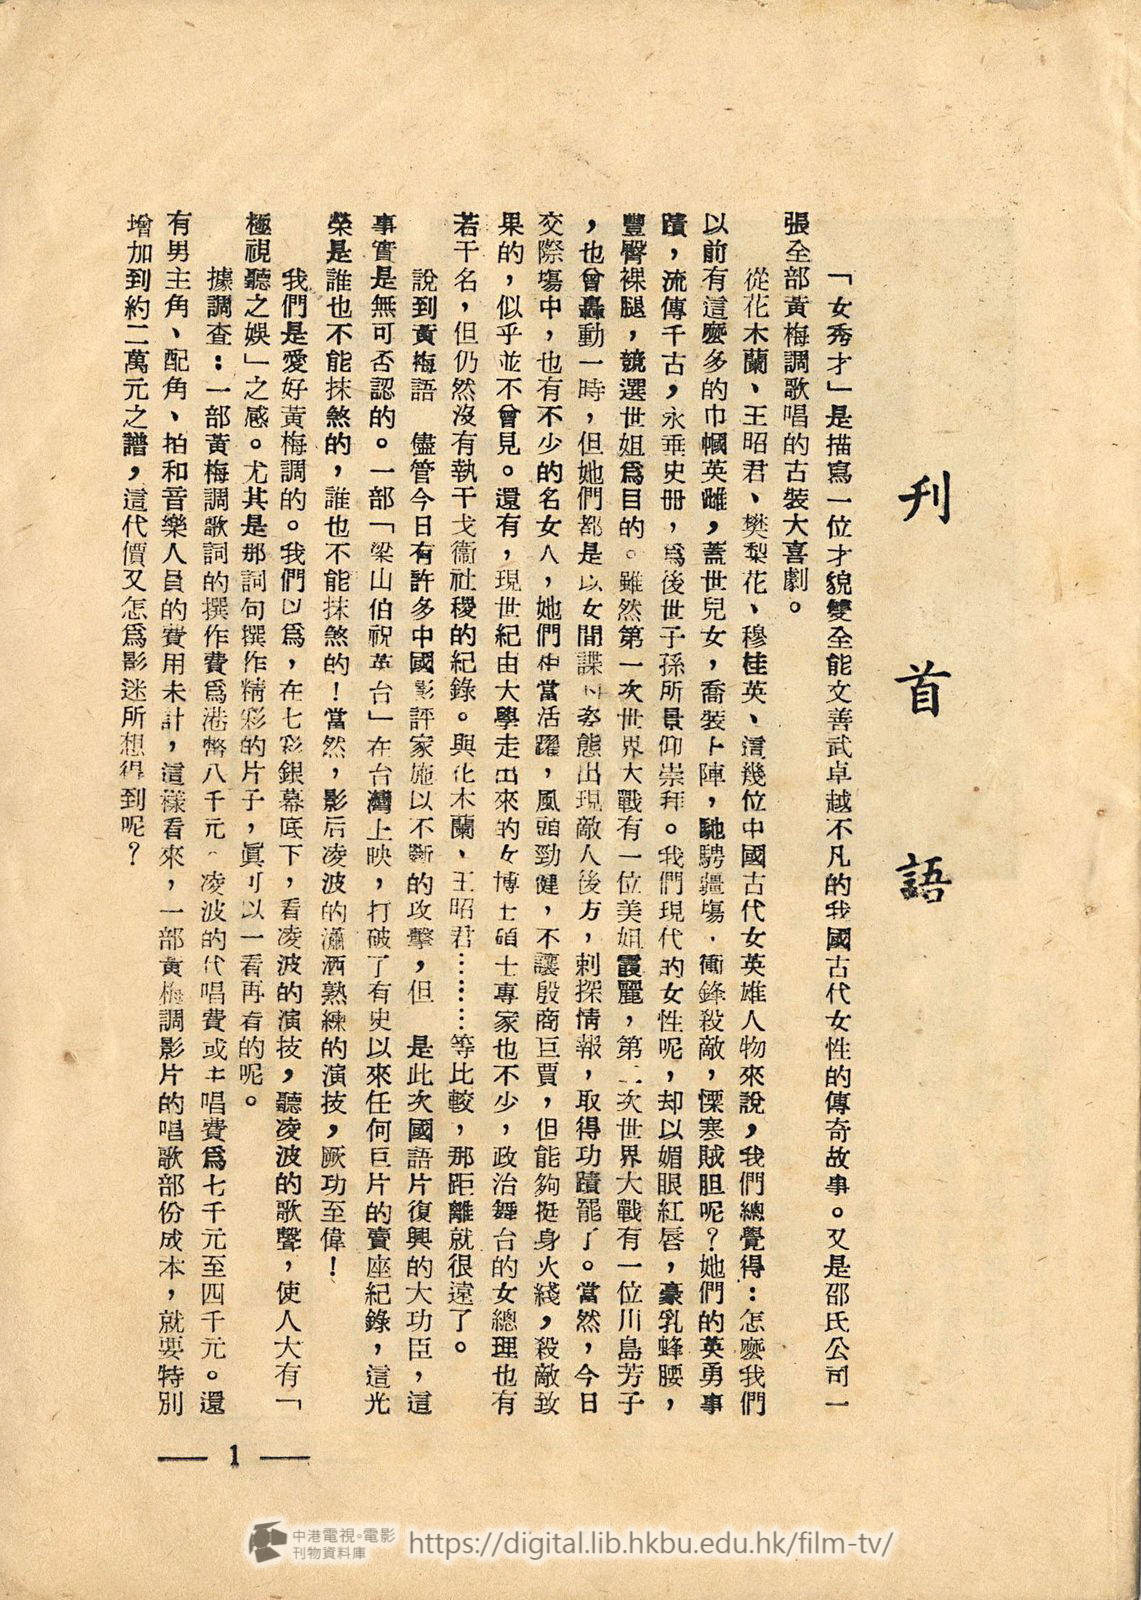 刊首語
「女秀才」是描寫一位才貌雙全能文善武卓越不凡的我國古代女性的傳奇故事。又是邵氏公司一
張全部黃梅調歌唱的古裝大喜劇。
從花木蘭、王昭君、樊梨花、穆桂英、這幾位中國古代女英雄人物來說，我們總覺得：怎麼我們
以前有這麼多的巾幗英雌，蓋世兒女，喬裝上陣，馳騁疆場．衝鋒殺敵，慄寒賊胆呢？她們的英勇事
蹟，流傳千古，永垂史册，爲後世子孫所景仰崇拜。我們現代的女性呢，却以媚眼紅唇，豪乳蜂腰，
豐臀裸腿，競選世姐爲目的。雖然第一次世界大戰有一位美姐霞麗，第二次世界大戰有一位川島芳子
，也曾轟動一時，但她們都是以女間諜 姿態出現敵人後方，刺探情報，取得功蹟罷了。當然，今日
交際塲中，也有不少的名女人，她們 當活躍，風頭勁健，不讓殷商巨賈，但能夠挺身火綫，殺敵致
果的，似乎並不曾見。還有，現世紀由大學走出來的女博士碩士專家也不少，政治舞台的女總理也有
若干名，但仍然沒有執干戈衞社稷的紀錄。與花木蘭、王昭君………等比較，那距離就很遠了。
說到黃梅語　儘管今日有許多中國影評家施以不斷的攻擊，但　是此次國語片復興的大功臣，這
事實是無可否認的。一部「梁山伯祝英台」在台灣上映，打破了有史以來任何巨片的賣座紀錄，這光
榮是誰也不能抹煞的，誰也不能抹煞的！當然，影后凌波的瀟洒熟練的演技，厥功至偉！
我們是愛好黃梅調的。我們以爲，在七彩銀幕底下，看凌波的演技，聽凌波的歌聲，使人大有「
極視聽之娛」之感。尤其是那詞句撰作精彩的片子，眞可以一看再看的呢。
據調查：一部黃梅調歌詞的撰作費爲港幣八千元、凌波的代唱費或主唱費爲七千元至四千元。還
有男主角、配角、拍和音樂人員的費用未計，這樣看來，一部黃梅調影片的唱歌部份成本，就要特別
增加到約二萬元之譜，這代價又怎爲影迷所想得到呢？
— 1 —
中港電視·電影
刊物資料庫
https://digital.lib.hkbu.edu.hk/film-tv/